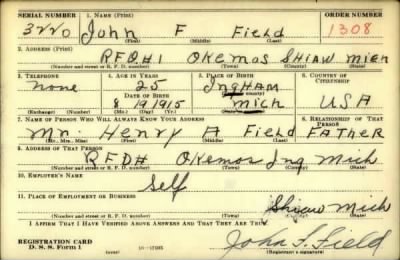 SERIAL NUMBER 1. NAME (Print) ORDER NUMBER
3220 John F Field 1308
(First) (Middle) (Last)
2. ADDRESS (Print)
RFD#1 Okemos SHIAW MICH
(Number and street or R. F. D. number) (Town) (County) (State)
3. TELEPHONE 4. AGE IN YEARS 5. PLACE OF BIRTH 6. COUNTRY OF CITIZENSHIP
none 25 INGHAM
DATE OF BIRTH (Town or county)
8 19 1915 Mich USA
(Exchange) (Number) (Mo.) (Day) (Yr.) (State or country)
7. NAME OF PERSON WHO WILL ALWAYS KNOW YOUR ADDRESS 8. RELATIONSHIP OF THAT PERSON
Mr. Henry A Field FATHER
(Mr., Mrs., Miss) (First) (Middle) (Last)
9. ADDRESS OF THAT PERSON
RFD# Okemos Ing Mich
(Number and street or R. F. D. number) (Town) (County) (State)
10. EMPLOYER'S NAME
Self
11. PLACE OF EMPLOYMENT OR BUSINESS
Shiaw Mich
(Number and street or R. F. D. number) (Town) (County) (State)
I AFFIRM THAT I HAVE VERIFIED ABOVE ANSWERS AND THAT THEY ARE TRUE.
REGISTRATION CARD
D. S. S. Form 1
John F. Field